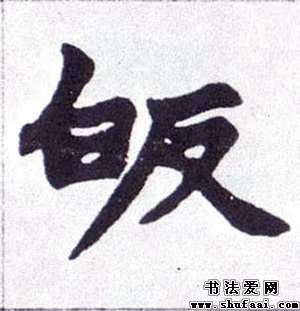 皈
书法爱网
www.shufaai.com